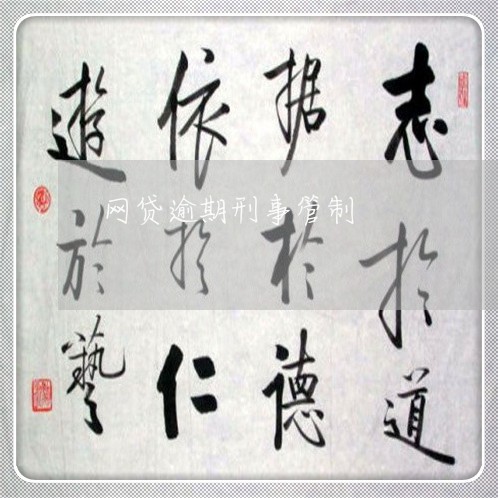 志於道
据於德
依於仁
遊於藝
网贷逾期刑事管制